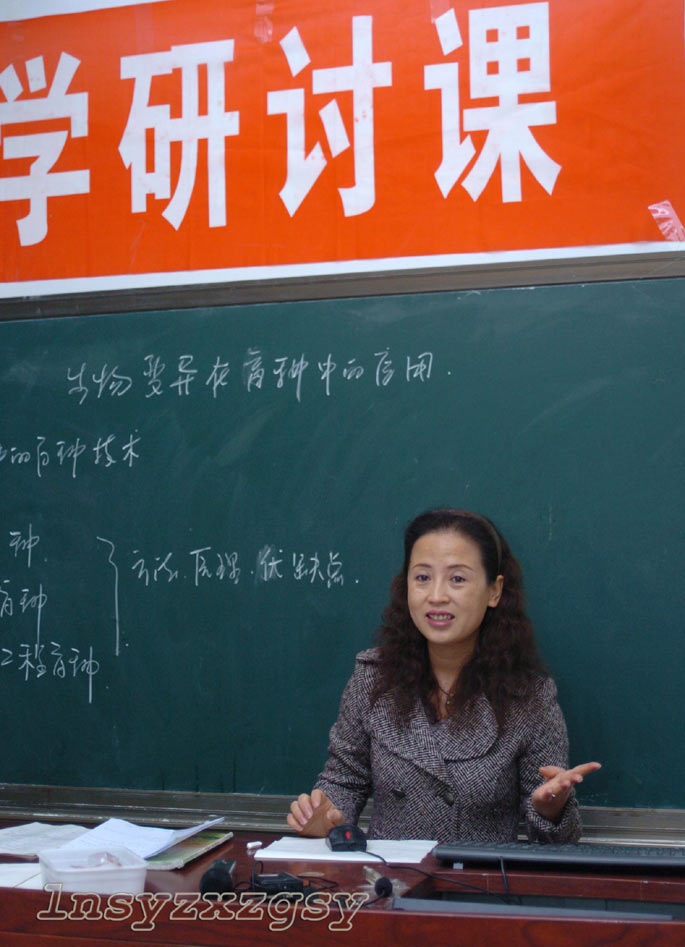 学研讨课
生物变异在育种中的应用.
的育种技术
种
育种
方法.原理.优缺点.
工程育种
lnsyzxzgsy